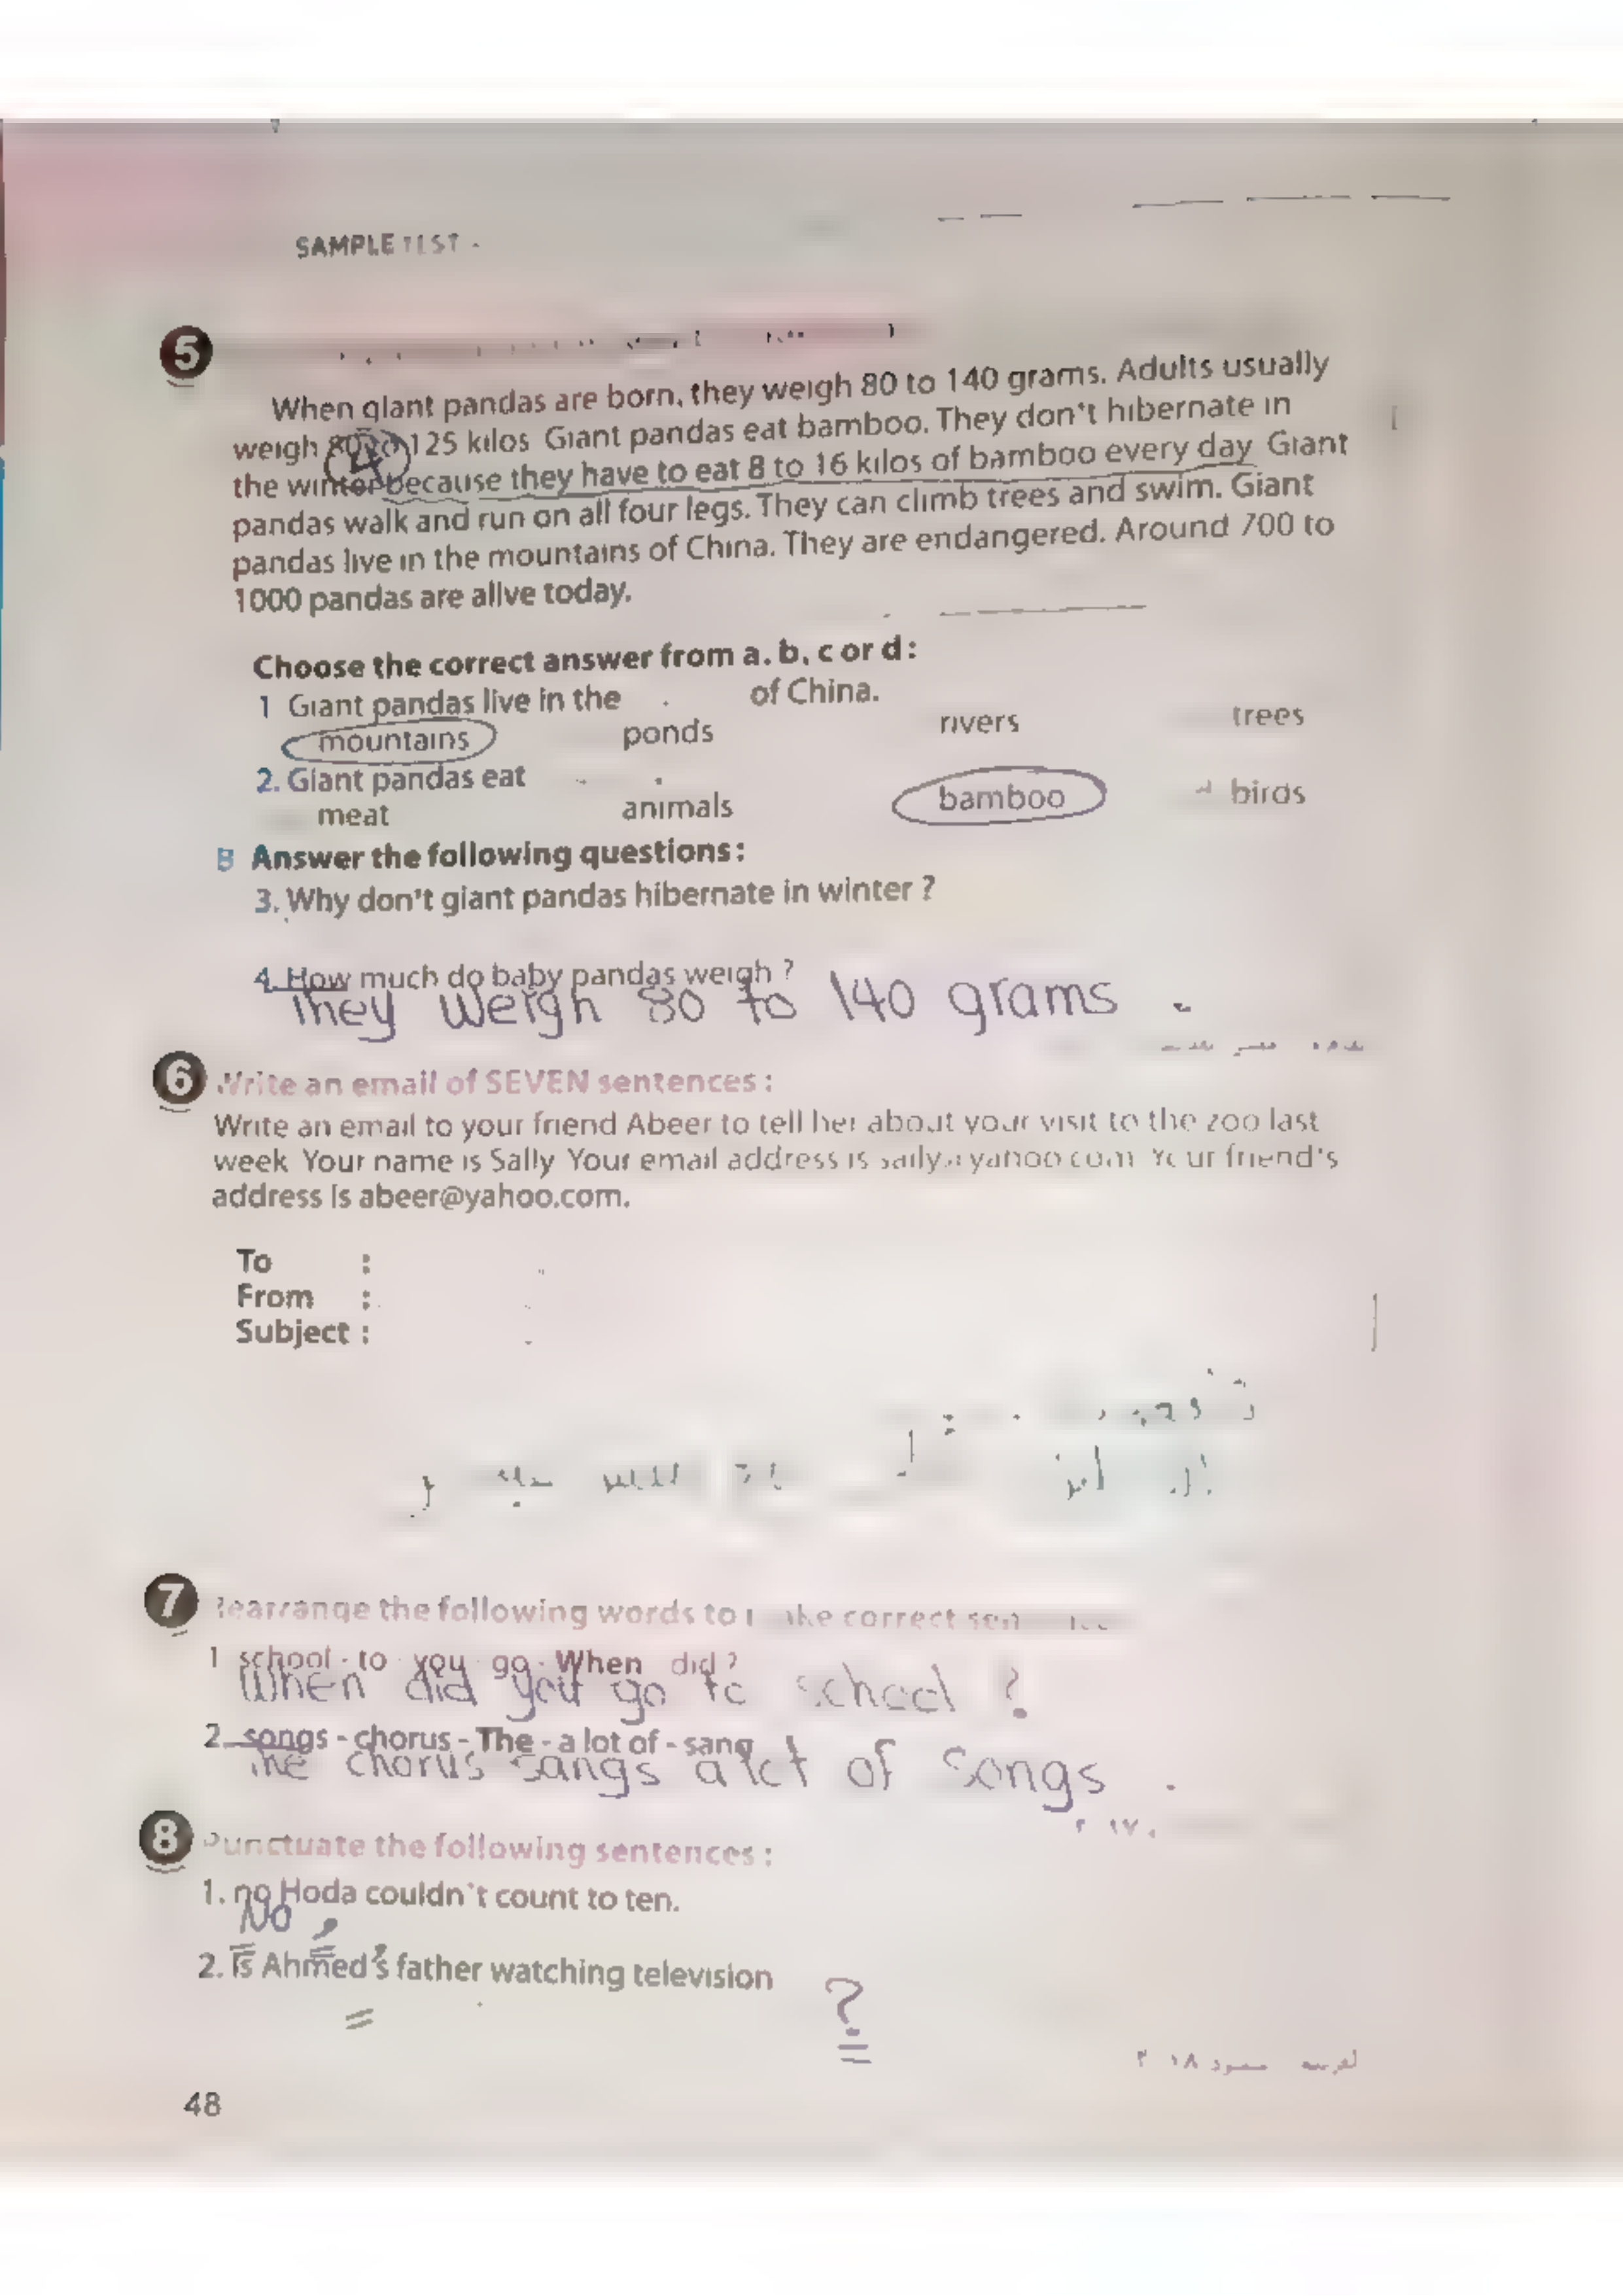 SAMPLE TEST
5
When giant pandas are born, they weigh 80 to 140 grams. Adults usually
weigh 80 to 125 kilos Giant pandas eat bamboo. They don't hibernate in
4
the winter because they have to eat 8 to 16 kilos of bamboo every day Giant
pandas walk and run on all four legs. They can climb trees and swim. Giant
pandas live in the mountains of China. They are endangered. Around 700 to
1000 pandas are alive today.
Choose the correct answer from a. b, c or d :
1 Giant pandas live in the of China.
mountains ponds rivers trees
2. Giant pandas eat
meat animals bamboo birds
B Answer the following questions :
3. Why don't giant pandas hibernate in winter ?
4. How much do baby pandas weigh ?
They weigh 80 to 140 grams .
6 Write an email of SEVEN sentences :
Write an email to your friend Abeer to tell her about your visit to the zoo last
week Your name is Sally Your email address is sally@yahoo.com Your friend's
address is abeer@yahoo.com.
To :
From :
Subject :
7 Rearrange the following words to make correct
1 school - to you go - When did ?
When did you go to school ?
2. songs - chorus - The - a lot of - sang
The chorus sangs a lot of songs .
8 Punctuate the following sentences :
1. no Hoda couldn't count to ten.
No ,
2. Is Ahmed's father watching television
?
48